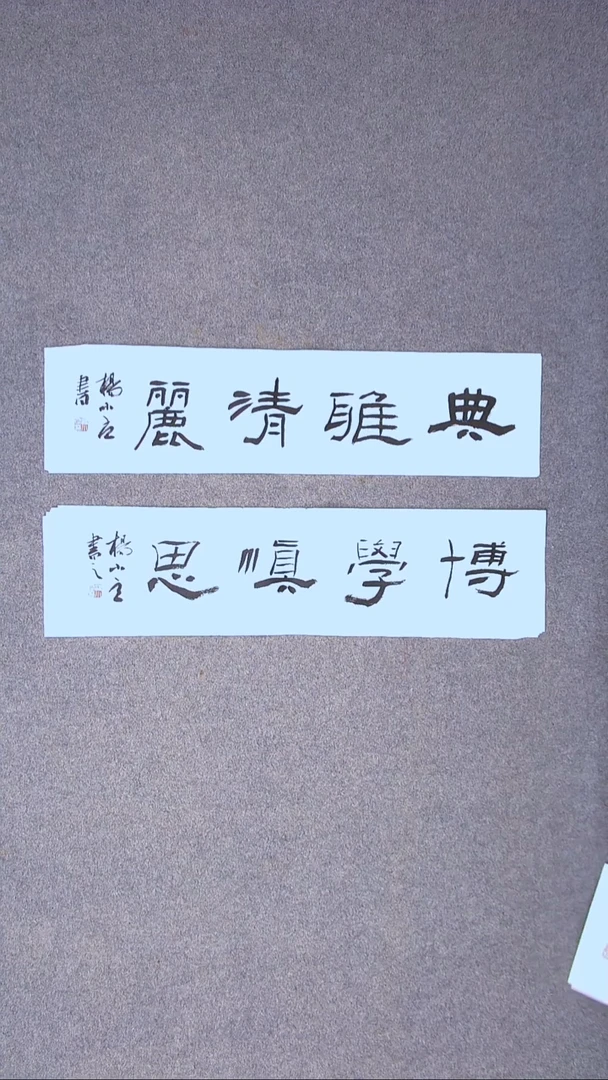 典雅清麗
楊小主書
博學慎思
楊小主書之